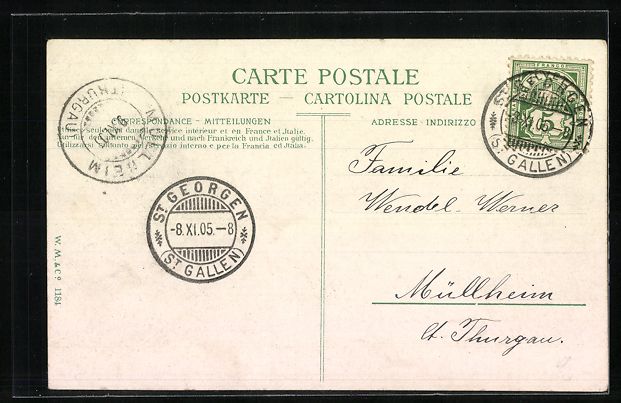 CARTE POSTALE
POSTKARTE — CARTOLINA POSTALE
CORRESPONDANCE - MITTEILUNGEN
ADRESSE - INDIRIZZO
seulement dans le service intérieur et en France et Italie.
Nur für den internen Verkehr und nach Frankreich und Italien gültig.
Utilizzarsi soltanto pel servizio interno e per la Francia ed Italia.
MÜLLHEIM
(THURGAU)
FRANCO
5
ST GEORGEN
XI.05.–8
(ST GALLEN)
ST GEORGEN
-8.XI.05.–8
(ST GALLEN)
Familie
Wendel-Werner
Müllheim
Ct. Thurgau.
W. M. & Cº 1184